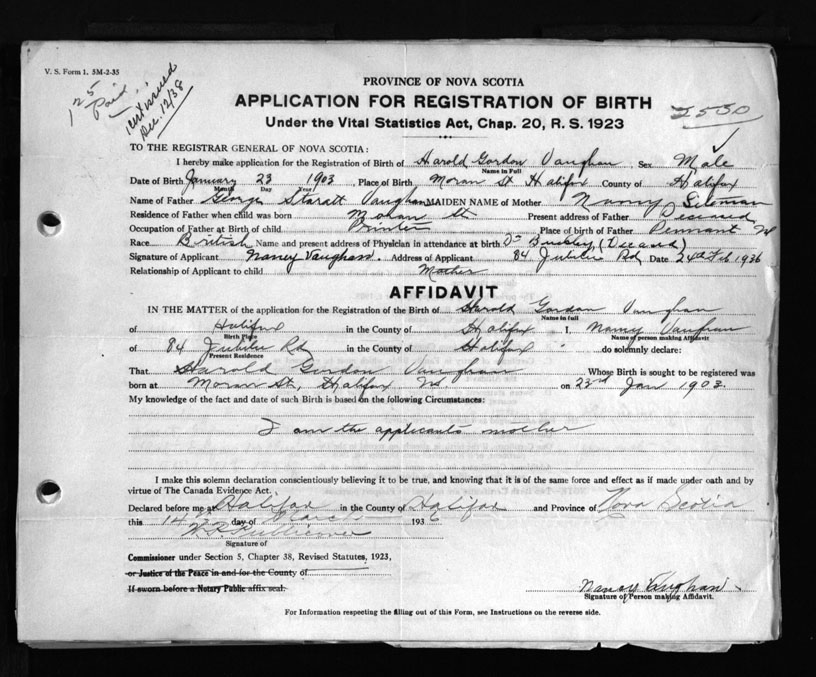 V. S. Form 1. 5M-2-35
Paid
cert issued
Dec. 12/38
PROVINCE OF NOVA SCOTIA
APPLICATION FOR REGISTRATION OF BIRTH
2530
Under the Vital Statistics Act, Chap. 20, R. S. 1923
TO THE REGISTRAR GENERAL OF NOVA SCOTIA:
I hereby make application for the Registration of Birth of Harold Gordon Vaughan Sex Male
Name in Full
Date of Birth January 23 1903 Place of Birth Moran St Halifax County of Halifax
Month Day Year
Name of Father George Vaughan MAIDEN NAME of Mother Nancy
Residence of Father when child was born Moran St Present address of Father Deceased
Occupation of Father at Birth of child Printer Place of birth of Father Pennant NS
Race British Name and present address of Physician in attendance at birth Dr Buckley (Deceased)
Signature of Applicant Nancy Vaughan. Address of Applicant 84 Jubilee Rd Date 24th Feb 1936
Relationship of Applicant to child Mother
AFFIDAVIT
IN THE MATTER of the application for the Registration of the Birth of Harold Gordon Vaughan
Name in full
of Halifax in the County of Halifax I, Nancy Vaughan
Birth Place Name of person making Affidavit
of 84 Jubilee Rd in the County of Halifax do solemnly declare:
Present Residence
That Harold Gordon Vaughan Whose Birth is sought to be registered was
born at Moran St, Halifax NS on 23rd Jan 1903
My knowledge of the fact and date of such Birth is based on the following Circumstances:
I am the applicants mother
I make this solemn declaration conscientiously believing it to be true, and knowing that it is of the same force and effect as if made under oath and by
virtue of The Canada Evidence Act.
Declared before me at Halifax in the County of Halifax and Province of Nova Scotia
this 14 day of March 1936
Signature of
Commissioner under Section 5, Chapter 38, Revised Statutes, 1923,
or Justice of the Peace in and for the County of
If sworn before a Notary Public affix seal.
Nancy Vaughan
Signature of Person making Affidavit.
For Information respecting the filling out of this Form, see Instructions on the reverse side.